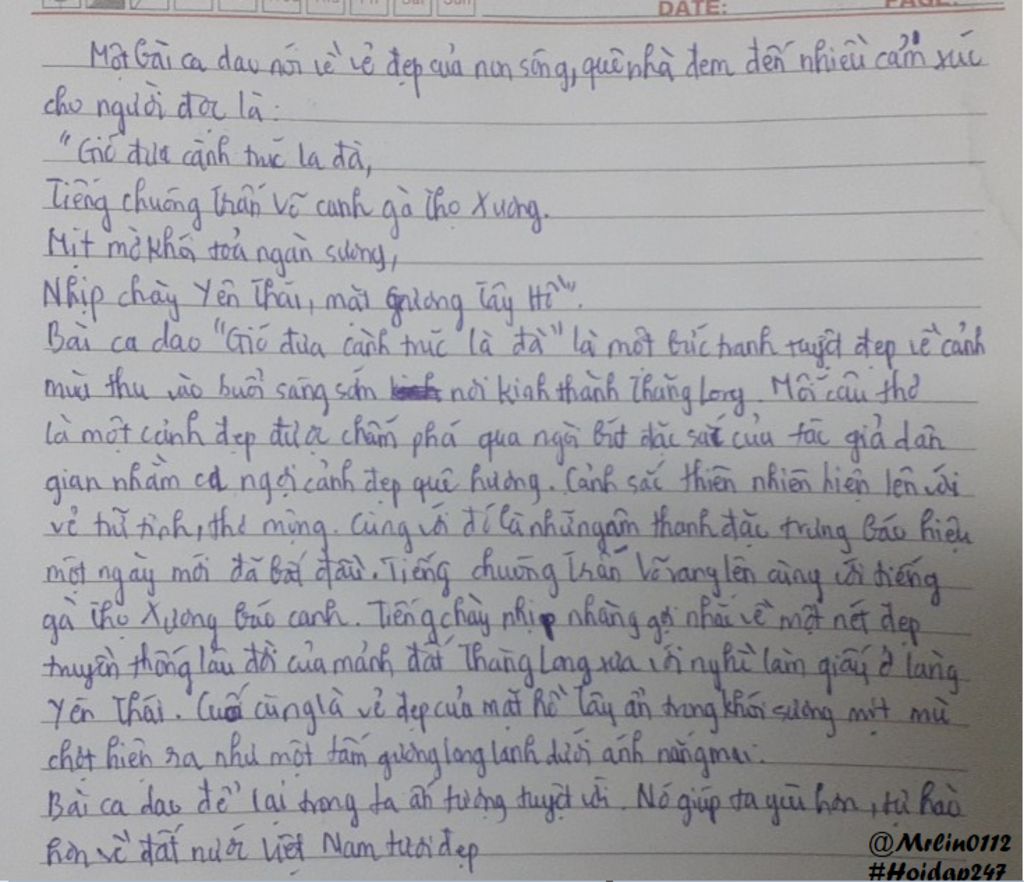 DATE:
Một bài ca dao nói về vẻ đẹp của non sông, quê nhà đem đến nhiều cảm xúc
cho người đọc là:
"Gió đưa cành trúc la đà,
Tiếng chuông Trấn Võ canh gà Thọ Xương.
Mịt mờ khói toả ngàn sương,
Nhịp chày Yên Thái, mặt gương Tây Hồ".
Bài ca dao "Gió đưa cành trúc là đà" là một bức tranh tuyệt đẹp về cảnh
mùa thu vào buổi sáng sớm nơi kinh thành Thăng Long. Mỗi câu thơ
là một cảnh đẹp được chấm phá qua ngòi bút đặc sắc của tác giả dân
gian nhằm ca ngợi cảnh đẹp quê hương. Cảnh sắc thiên nhiên hiện lên với
vẻ trữ tình, thơ mộng. Cùng với đó là những âm thanh đặc trưng báo hiệu
một ngày mới đã bắt đầu. Tiếng chuông Trấn Võ vang lên cùng với tiếng
gà Thọ Xương báo canh. Tiếng chày nhịp nhàng gợi nhắc về một nét đẹp
truyền thống lâu đời của mảnh đất Thăng Long xưa với nghề làm giấy ở làng
Yên Thái. Cuối cùng là vẻ đẹp của mặt hồ Tây ẩn trong khói sương mịt mù
chợt hiện ra như một tấm gương long lanh dưới ánh nắng mai.
Bài ca dao để lại trong ta ấn tượng tuyệt vời. Nó giúp ta yêu hơn, tự hào
hơn về đất nước Việt Nam tươi đẹp
@Mrlin0112
#Hoidap247